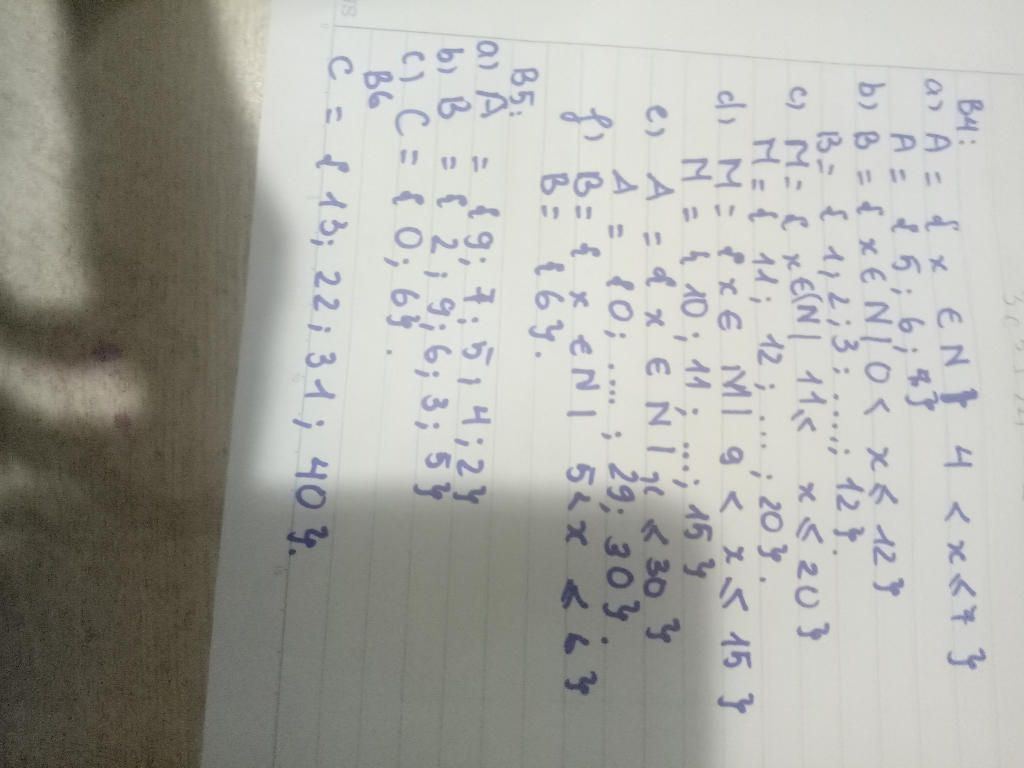 B4:
a) A = { x ∈ N } 4 < x ≤ 7 }
A = { 5; 6; 7}
b) B = { x ∈ N | 0 < x ≤ 12 }
B = { 1, 2; 3; ....; 12 }.
c) M = { x ∈ N | 11 ≤ x ≤ 20 }
M = { 11; 12; ...; 20 }.
d) M = { x ∈ M | 9 < x ≤ 15 }
M = { 10; 11; ...; 15 }
e) A = { x ∈ N | x ≤ 30 }
A = { 0; ....; 29; 30 }.
f) B = { x ∈ N | 5 < x ≤ 6 }
B = { 6 }.
B5:
a) A = { 9; 7; 5; 4; 2}
b) B = { 2; 9; 6; 3; 5}
c) C = { 0; 6}.
B6
C = { 13; 22; 31; 40 }.